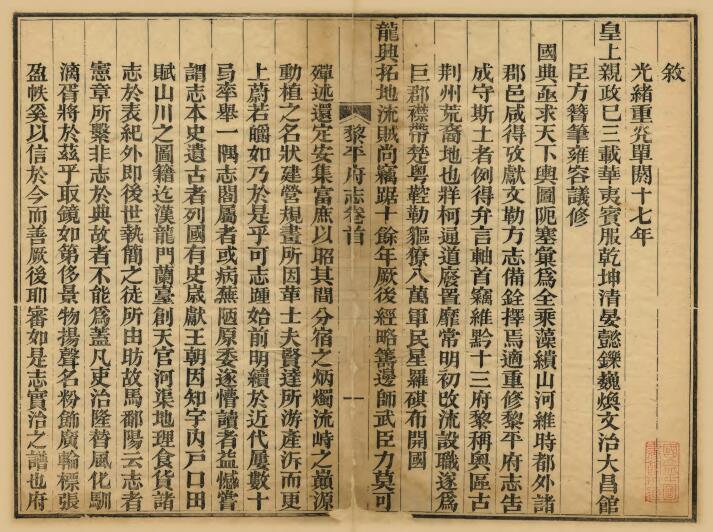 敘
光緒重光單閼十七年
皇上親政巳三載華夷賓服乾坤清晏懿鑠巍煥文治大昌館
臣方簪筆雍容議修
國典亟求天下輿圖阨塞彙爲全乘藻繢山河維時都外諸
郡邑咸得攷獻文勒方志備銓擇焉適重修黎平府志告
成守斯土者例得弁言軸首竊維黔十三府黎稱輿區古
荆州荒裔地也牂柯通道廢置靡常明初改流設職遂爲
巨郡襟帶楚粵鞚勒貙獠八萬軍民星羅碁布開國
龍興拓地流賊尚竊踞十餘年厥後經略籌邊師武臣力莫可
黎平府志卷首
一
殫述還定安集富庶以昭其間分宿之炳燭流峙之巔源
動植之名狀建營規畫所因革士夫賢達所游產泝而更
上蔚若皭如乃於是乎可志踵始前明續於近代屢數十
昜率舉一隅志閣屬者或病蕪陋原委遂懵讀者益憾嘗
謂志本史遺古者列國有史嵗獻王朝因知宇內戸口田
賦山川之圖籍迄漢龍門蘭臺創天官河渠地理食貨諸
志於表紀外即後世執簡之徒所由昉故馬鄱陽云志者
憲章所繫非志於典故者不能爲蓋凡吏治隆替風化馴
漓胥將於茲乎取鏡如第侈景物揚聲名粉飾廣輪標張
盈帙奚以信於今而善厥後耶審如是志實治之譜也府